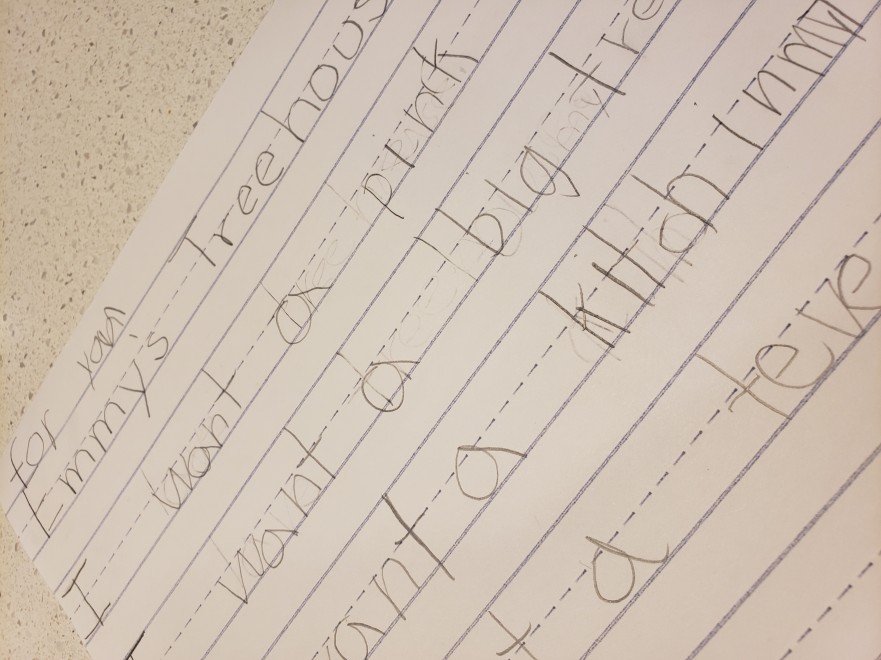 for your
Emmy's Treehous
I want a pink
want a big tre
ant a kithh in my
t a teve